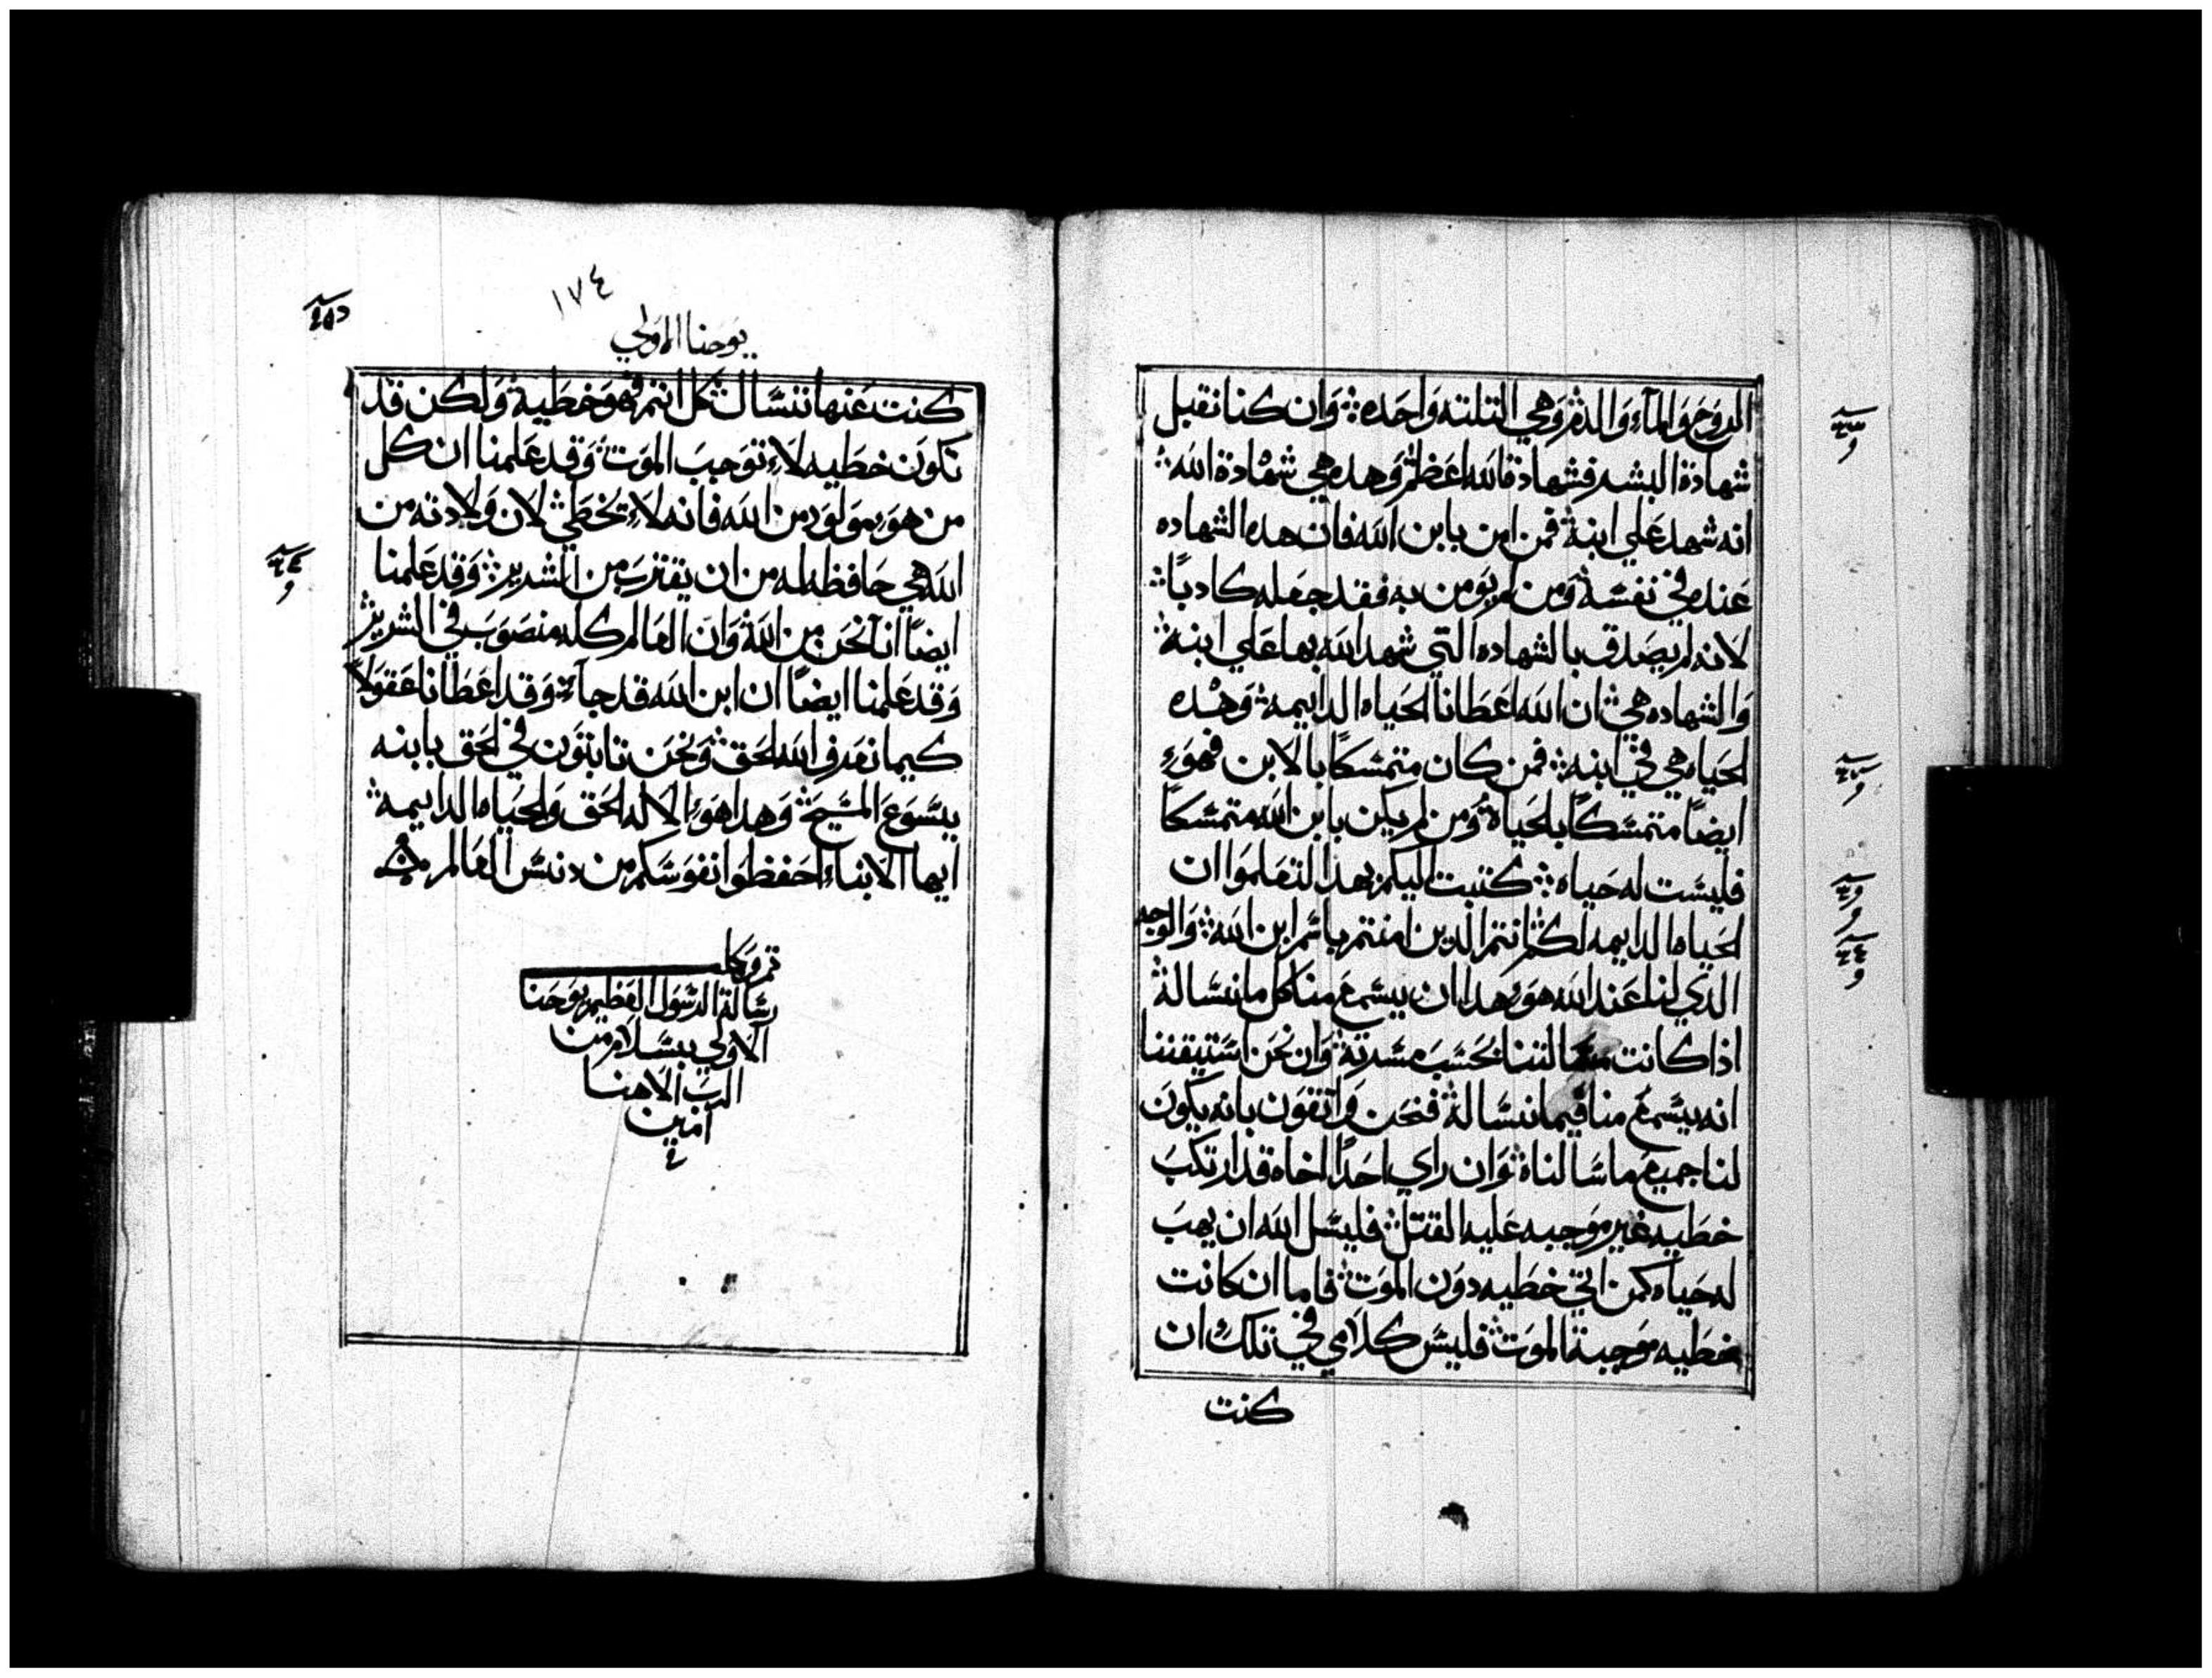 الروح والماء والدم وهي التلته واحده وان كنا نقبل
شهادة البشر فشهادة الله اعظم وهده هي شهادة الله
انه شهد علي ابنه فمن امن بابن الله فان هده الشهاده
عنده في نفسه ومن لم يومن به فقد جعله كادبًا
لانه لم يصدق بالشهاده التي شهد الله بها علي ابنه
والشهاده هي ان الله اعطانا الحياه الدايمه وهده
الحياه هي في ابنه فمن كان متمسكًا بالابن فهوء
ايضًا متمسكًا بالحياه ومن لم يكن بابن الله متمسكًا
فليست له حياه كتبت اليكم بهدا لتعلموا ان
الحياه الدايمه لكم انتم الدين امنتم باسم ابن الله والوجه
الدي لنا عند الله هوء هدا ان يسمع منا كل ما نساله
اذا كانت مسالتنا بحسب مسرته وان نحن استيقننا
انه يسمع منا فيما نساله فنحن واتقون بانه يكون
لنا جميع ما سالناه وان راي احدًا اخاه قد ارتكب
خطيه غير موجبه عليه القتل فليسل الله ان يهب
له حياه كمن اتي خطيه دون الموت فاما ان كانت
خطيه موجبة الموت فليس كلامي في تلك ان
كنت
١٧٤
يوحنا الاولي
كنت عنها تسال كل اتم فهو خطية ولكن قد
تكون خطيه لاء توجب الموت وقد علمنا ان كل
من هوء مولود من الله فانه لاء يخطي لان ولادته من
الله هي حافظه له من ان يقترب من الشرير وقد علمنا
ايضًا اننا نحن من الله وان العالم كله منصوب في الشرير
وقد علمنا ايضًا ان ابن الله قد جاء وقد اعطانا عقولاً
كيما نعرف الله الحق ونحن تابتون في الحق بابنه
يسوع المسيح وهدا هوء الاله الحق والحياه الدايمه
ايها الابناء احفظوا نفوسكم من دنس العالم
تم وكل
رسالة الرسول العظيم يوحنا
الاولي بسلام من
الرب الاهنا
امين